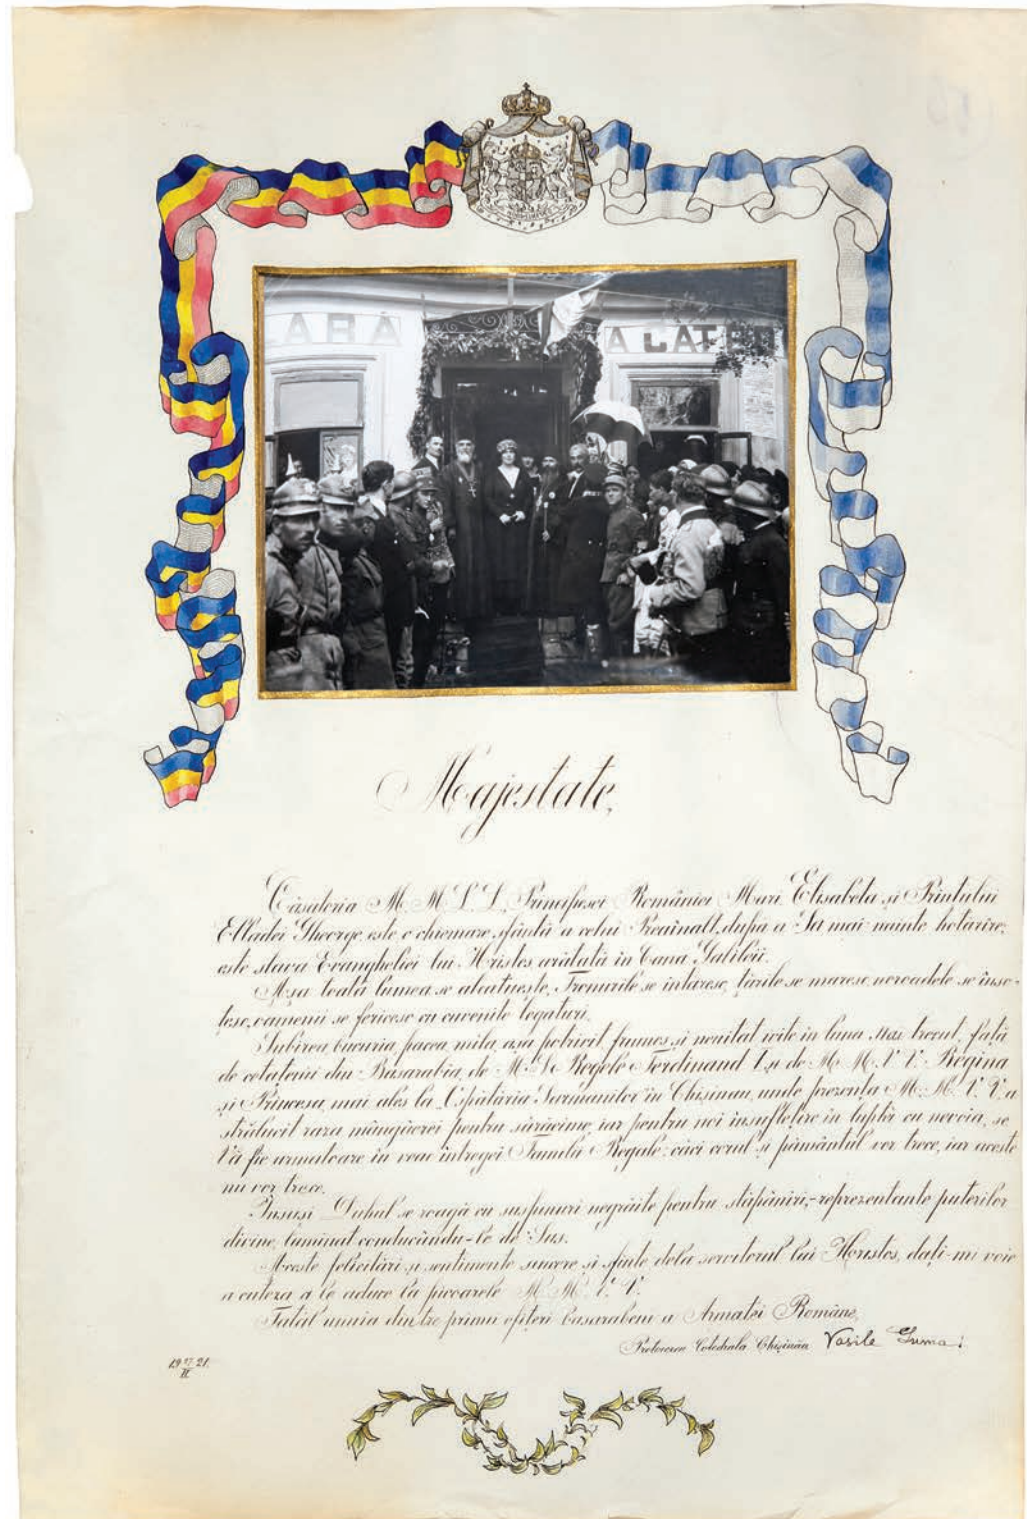 ARA
A CAT
Majestate,
Căsătoria M. M. L. L. Principesei României Mari Elisabeta și Prințului
Elladei Gheorge, este o chiemare sfântă a celui Preainalt, după a Sa mai nainte hotărire,
este slava Evangheliei lui Hristos arătată în Cana Galileii.
Așa toată lumea se alcătuește, Tronurile se intăresc, țările se maresc, noroadele se înso-
țesc, oamenii se fericesc cu cuvenite legaturi.
Iubirea, bucuria, pacea, mila, așa potrivit frumos și neuitat ivite in luna Mai trecut, față
de cetățenii din Basarabia, de M. S. Regele Ferdinand I și de M. M. V. V. Regina
și Princesa, mai ales la Ospătăria Sarmanilor în Chisinau, unde prezența M. M. V. V. a
strălucit raza mângăerei pentru sărăcime, iar pentru noi insuflețire in luptă cu nevoia, se
Vă fie urmatoare in veac întregei Familii Regale: căci cerul și pământul vor trece, iar aceste
nu vor trece.
Insuși Duhul se roagă cu suspinuri negrăite pentru stăpâniri,- reprezentante puterilor
divine, luminat conducându-le de Sus.
Aceste felicitări și sentimente sincere și sfinte dela servitorul lui Hristos, dați-mi voie
a cuteza a le aduce la picoarele M. M. V. V.
Tatăl unuia dintre primii ofițeri basarabeni a Armatei Române,
Protoereu Catedrala Chișinău Vasile
19 27/II 21.